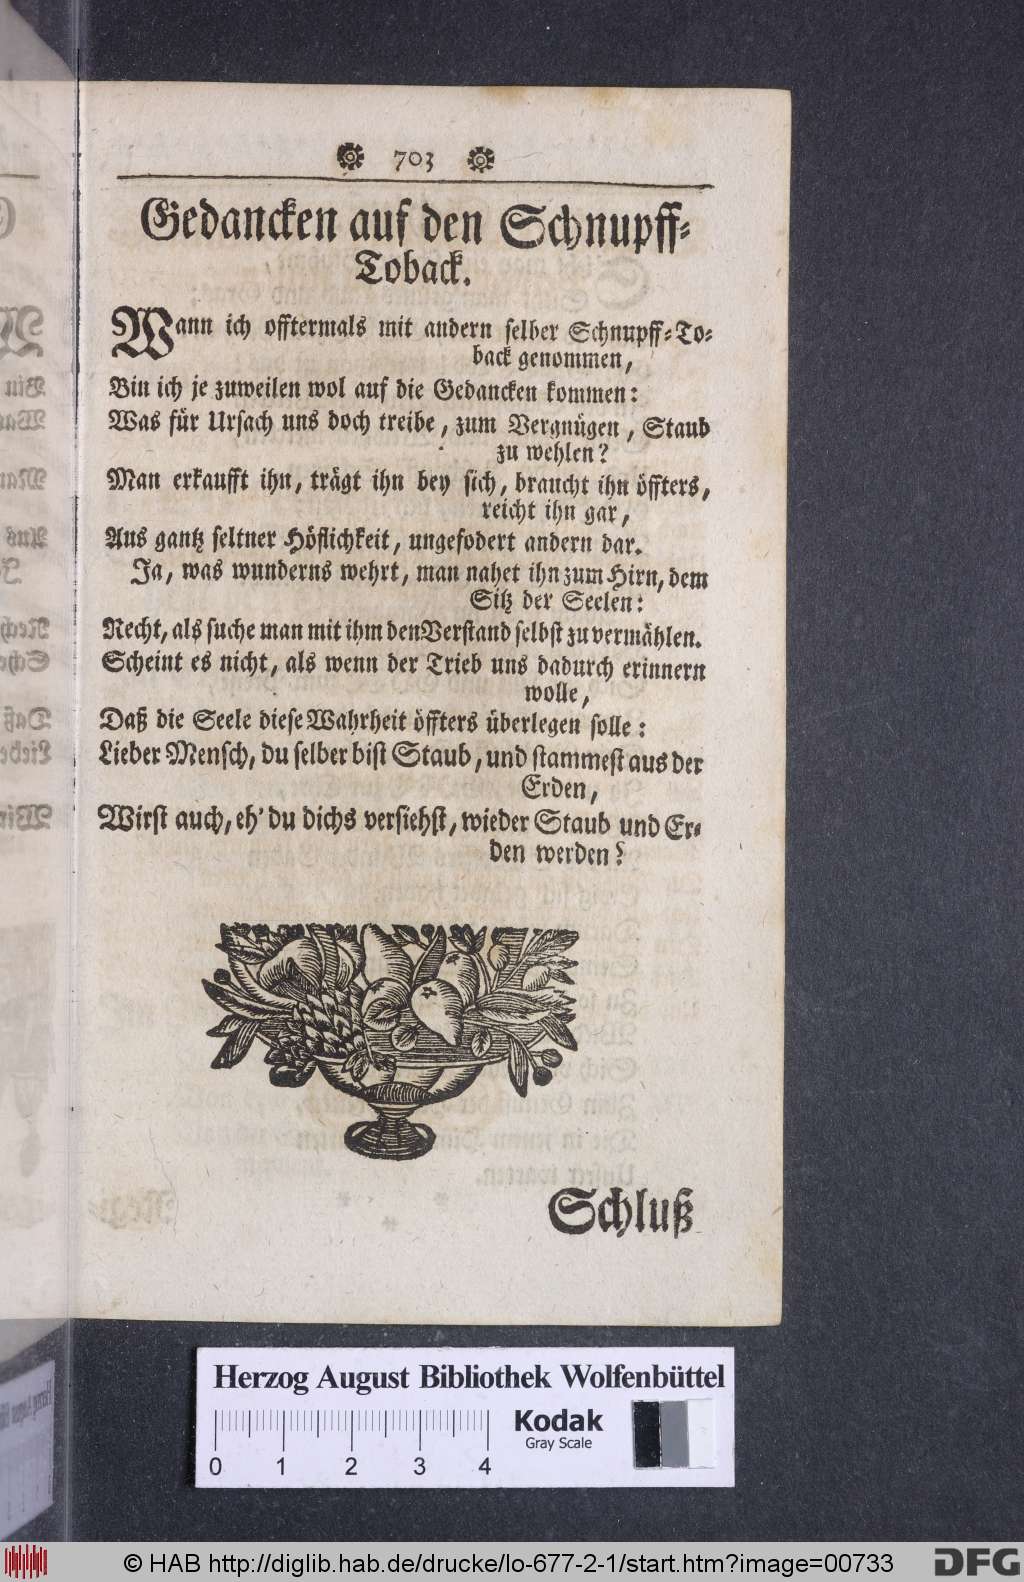 703
Gedancken auf den Schnupff-
Toback.
Wann ich offtermals mit andern selber Schnupff-To-
back genommen,
Bin ich je zuweilen wol auf die Gedancken kommen:
Was für Ursach uns doch treibe, zum Vergnügen, Staub
zu wehlen?
Man erkaufft ihn, trägt ihn bey sich, braucht ihn öffters,
reicht ihn gar,
Aus gantz seltner Höflichkeit, ungefodert andern dar.
Ja, was wunderns wehrt, man nahet ihn zum Hirn, dem
Sitz der Seelen:
Recht, als suche man mit ihm den Verstand selbst zu vermählen.
Scheint es nicht, als wenn der Trieb uns dadurch erinnern
wolle,
Daß die Seele diese Wahrheit öffters überlegen solle:
Lieber Mensch, du selber bist Staub, und stammest aus der
Erden,
Wirst auch, eh' du dichs versiehst, wieder Staub und Er-
den werden?
Schluß
Herzog August Bibliothek Wolfenbüttel
Kodak
Gray Scale
0 1 2 3 4
© HAB http://diglib.hab.de/drucke/lo-677-2-1/start.htm?image=00733
DFG